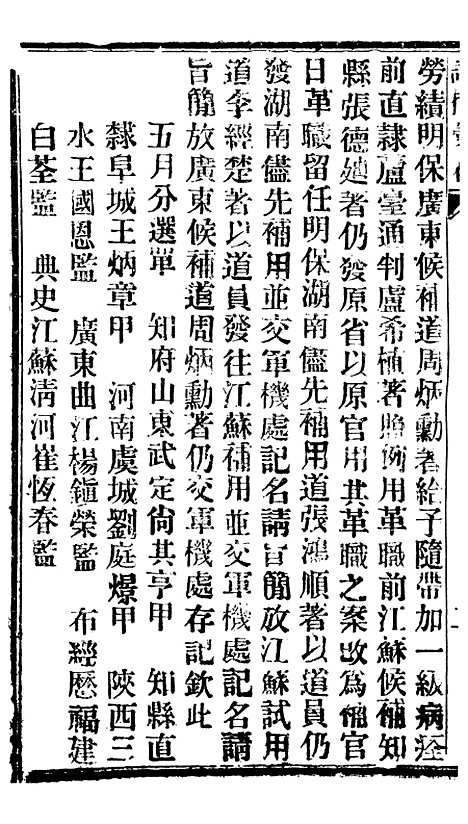 勞績明保廣東候補道周炳勳著給予隨帶加一級病痊
前直隸廬臺通判盧希植著照例用革職前江蘇候補知
縣張德廸著仍發原省以原官用其革職之案改為補官
日革職留任明保湖南儘先補用道張鴻順著以道員仍
發湖南儘先補用並交軍機處記名請旨簡放江蘇試用
道李經楚著以道員發往江蘇補用並交軍機處記名請
旨簡放廣東候補道周炳勳著仍交軍機處存記欽此
五月分選單　知府山東武定尙其亨甲　知縣直
隸阜城王炳章甲　河南虞城劉庭爆甲　陝西三
水王國恩監　廣東曲江楊鎭榮監　布經歷福建
白荃監　典史江蘇淸河崔恆春監